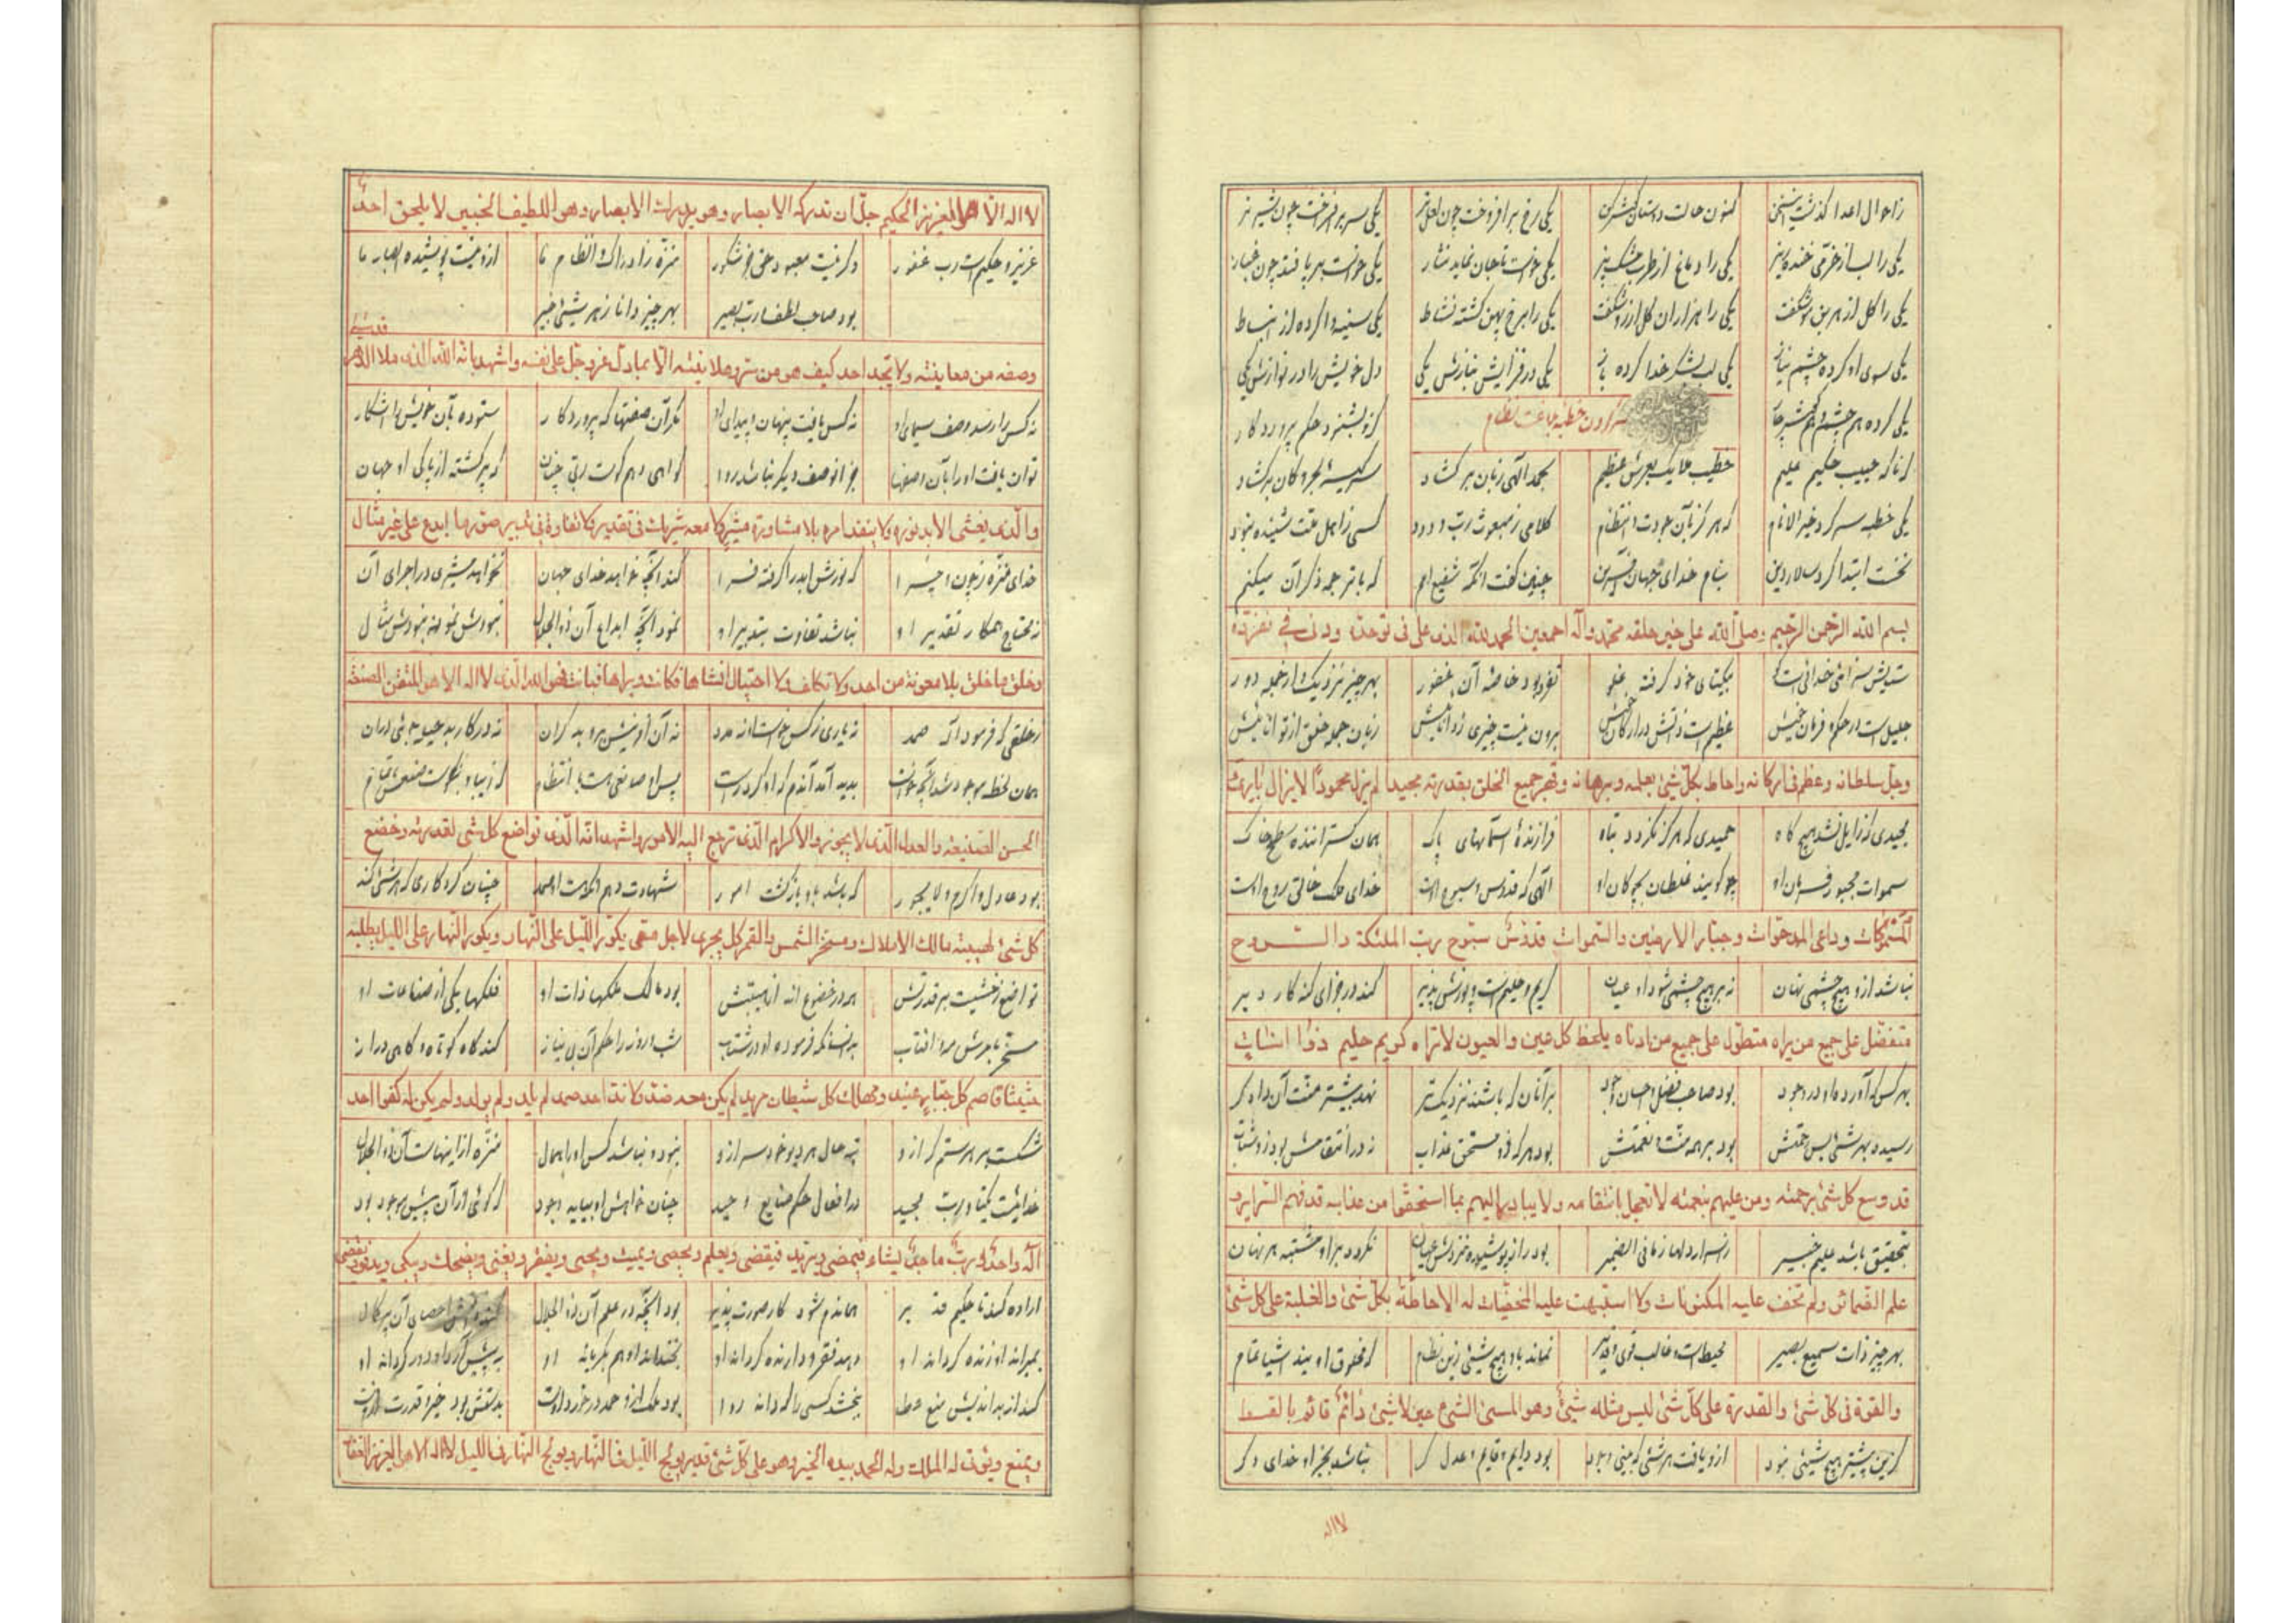 زاحوال اعدا گذشت سخن کنون حالت دوستان گوش کن یکی رخ برافروخت چون لعل تر یکی سر برافراخت چون شیر نر
یکی را لب از خرمی خنده ریز یکی را دماغ از طرب مشک بیز یکی خواست تا جان نماید نثار یکی خواست بر پا فتد چون غبار
یکی را گل از هر بن مو شگفت یکی را هزاران گل از رو شگفت یکی را برخ پهن گشته نشاط یکی سینه وا کرده از انبساط
یکی سوی او کرده چشم نیاز یکی لب بشکر خدا کرده باز یکی در فزایش بنازش یکی دل خویش را در نوازش یکی
یکی کرده هم چشم و هم گوش باز که تو بشنود حکم پروردگار
کردن خطبه بلاغت نظام
از آنکه حبیب حکیم علیم خطیب ملایک بعرش عظیم بحمد الهی زبان بر گشاد سر کیسهٔ بحر و کان بر گشاد
یکی خطبه سر کرد خیر الانام که هرگز بآن جودت و انتظام کلامی ز مبعوث رب ودود کسی ز اهل بعثت شنیده نبود
نخست ابتدا کرد سالار دین بنام خدای جهان آفرین چنین گفت آنگه شفیع امم که با ترجمه ذکر آن میکنم
بسم الله الرحمن الرحیم وصلی الله علی خیر خلقه محمد وآله اجمعین الحمد لله الذی علی فی توحده ودنی فی تفرده
ستایش سزای خدائیست کو بیکتای خود گرفته علو تفرد بود خاصهٔ آن غفور بهر چیز نزدیک و از جمله دور
جلیل است در حکم و فرمان خویش عظیم است ذاتش در ارکان خویش برون نیست چیزی ز دانائیش زبان جمله خلق از توانائیش
وجل سلطانه وعظم فی ارکانه واحاط بکل شئ بعلمه وبرهانه وقهر جمیع الخلق بقدرته مجیدا لم یزل محمودا لا یزال باری
مجیدی که زایل نشد هیچ گاه حمیدی که هرگز نگردد تباه فرازندهٔ آسمانهای پاک همان گستراننده سطح خاک
سموات مجبور فرمان او چو گویند غلطان بچوگان او الهی که قدوس و سبوح است خدای ملک خالق روح است
المسموکات وداحی المدحوات وجبار الارضین والسموات قدوس سبوح رب الملئکة والروح
نباشد ازو هیچ چشمی نهان نه بر هیچ چشمی شود او عیان کریم و حلیم است و پوزش پذیر کند در جزای گنه کار دیر
متفضل علی جمیع من براه متطول علی جمیع من ادناه یلحظ کل عین والعیون لا تراه کریم حلیم ذو انات
بهر کس که آورده او در وجود بود صاحب فضل و احسان و جود بر آنان که باشند نزدیک تر نهد بیشتر منت آن دادگر
رسیده بهر شئ بس رحمتش بود بر همه منت و نعمتش بود هر که زو مستحق عذاب نه در انتقامش بود زو شتاب
قد وسع کل شئ برحمته ومن علیهم بنعمته لا تعجل بانتقامه ولا یبادر الیهم بما استحقوا من عذابه قد فهم السرایر و
بتحقیق باشد علیم خبیر ز اسرار دلها ز ما فی الضمیر بود راز پوشیده نزدش عیان نگردد بر او مشتبه هر نهان
علم الضمائر ولم تخف علیه المکنونات ولا اشتبهت علیه الخفیات له الاحاطة بکل شئ والغلبة علی کل شئ
بهر چیز ذات سمیع بصیر محیط است و غالب قوی و قدیر نماند باو هیچ شیئی زین نظام که مخلوق اویند اشیا تمام
والقوة فی کل شئ والقدرة علی کل شئ لیس مثله شئ وهو المنشئ الشئ حین لا شئ دائم قائم بالقسط
کزین پیشتر هیچ شیئی نبود ازو یافت هر شئ که بینی وجود بود دایم و قایم و عدل گر نباشد بجز او خدای دگر
لا اله
لا اله الا هو العزیز الحکیم جل ان تدرکه الابصار وهو یدرک الابصار وهو اللطیف الخبیر لا یلحق احد
عزیز و حکیم است رب غفور دگر نیست معبود حق جز شکور منزه ز ادراک و انظار ما ازو نیست پوشیده ابصار ما
بود صاحب لطف رب بصیر بهر چیز دانا ز هر شئ خبیر
وصفه من معاینة ولا یجد احد کیف هو من سر وعلانیة الا بما دل عز وجل علی نفسه واشهد بانه الله الذی ملا الدهر قدسه
نه کس را رسد وصف سیمای او نه کس یافت پنهان و پیدای او مگر آن صفتها که پروردگار ستوده بآن خویش را آشکار
توان یافت او را بآن وصفها جز او وصف دیگر نباشد روا گواهی دهم کوست ربی چنان که پر گشته از پاکی او جهان
والذی یغشی الابد نوره ولا ینفذ امره بلا مشاورة مشیر ولا معه شریک فی تقدیر ولا تفاوة فی تدبیر صور ما ابدع علی غیر مثال
خدای منزه ز چون و چرا که نورش ابد را گرفته فرا کند آنچه خواهد خدای جهان نخواهد مشیری در اجرای آن
نه محتاج همکار تقدیر او نباشد تفاوت بتدبیر او نمود آنچه ابداع آن ذو الجلال نبودش نمونه نبودش مثال
وخلق ما خلق بلا معونة من احد ولا تکلف ولا احتیال انشاها فکانت وبراها فبانت فهو الله الذی لا اله الا هو المتقن الصنعة
ز خلقی که فرمود آن صمد نه یاری ز کس خواست او نه مدد نه آن آفرینش برو بد گران نه در کار بد حیله جوئی دران
همان لحظه موجود شد آنچه خواست پدید آمد آندم که او کرد راست پس او صانعی هست با انتظام که زیبا و نیکوست صنعش تمام
الحسن الصنیعة والعدل الذی لا یجور والاکرام الذی ترجع الیه الامور واشهد انه الذی تواضع کل شئ لقدرته وخضع
بود عادل و اکرم و لا یجور که باشد باو بازگشت امور شهادت دهم آنکه هست احد چنان کردگاری که هر شئ کند
کل شئ لهیبته مالک الاملاک ومسخر الشمس والقمر کل یجری لاجل مسمی یکور اللیل علی النهار ویکور النهار علی اللیل یطلبه
تواضع ز خشیت بر قدرتش همه در خضوع اند از هیبتش بود مالک ملکها ذات او فلکها یکی از صناعات او
مسخر بامرش مه و آفتاب بدانسان که فرموده او در شتاب شب و روز را حکم آن بی نیاز کند گاه کوتاه و گاهی دراز
حثیثا قاصم کل جبار عنید ومهلک کل شیطان مرید لم یکن معه ضد ولا ند احد صمد لم یلد ولم یولد ولم یکن له کفوا احد
شکست هر ستمگر ازو تبه حال هر دیو خود سر ازو نبود و نباشد کس او را همال منزه از اینهاست آن ذو الجلال
خدائیست یکتا و رب مجید در افعال حکم صنایع وحید چنان خواهش او بیابد وجود که گوئی ازان پیش موجود بود
اله واحد ورب ماجد یشاء فیمضی ویرید فیقضی ویعلم ویحصی ویمیت ویحیی ویفقر ویغنی ویضحک ویبکی ویدنو ویقصی
اراده کند تا حکیم قدیر هماندم شود کار صورت پذیر بود آنچه در علم آن ذو الجلال
بمیراند او زنده گرداند او دهد فقر و دارنده گرداند او بخنداند او هم بگریاند او به پیش آرد او دور گرداند او
کند از بد اندیش منع عطا ببخشد کسی را که داند روا بود ملک ازو حمد در خورد اوست بدستش بود خیر و قدرت هم اوست
ویمنع ویؤتی له الملک وله الحمد بیده الخیر وهو علی کل شئ قدیر یولج اللیل فی النهار ویولج النهار فی اللیل لا اله الا هو العزیز الغفار